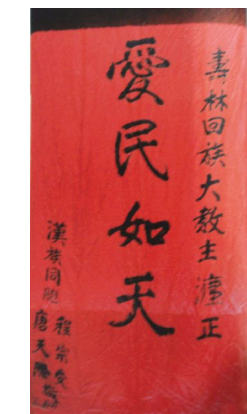 壽林回族大教主 正
愛民如天
漢族同胞 程宗安
唐天